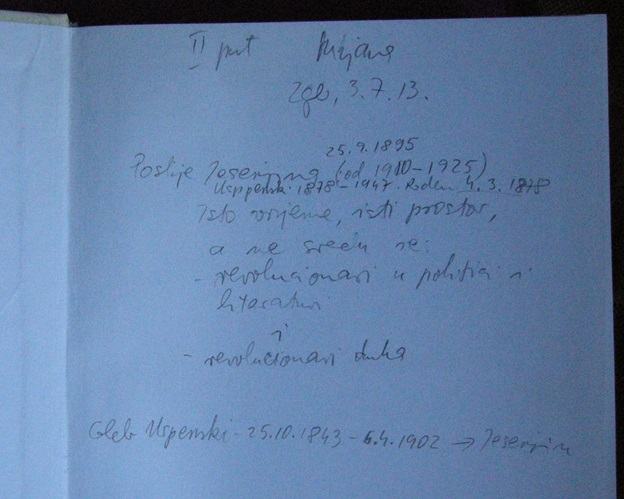 II put Mirjana
Zgb, 3.7.13.
25.9.1895
Poslije Jesenjina (od 1910-1925)
Uspenski 1878-1947. Rođen 4.3.1878
Isto vrijeme, isti prostor,
a ne sreću se:
- revolucionari u politici i
literaturi
i
- revolucionari duha
Gleb Uspenski - 25.10.1843 - 6.4.1902 → Jesenjin